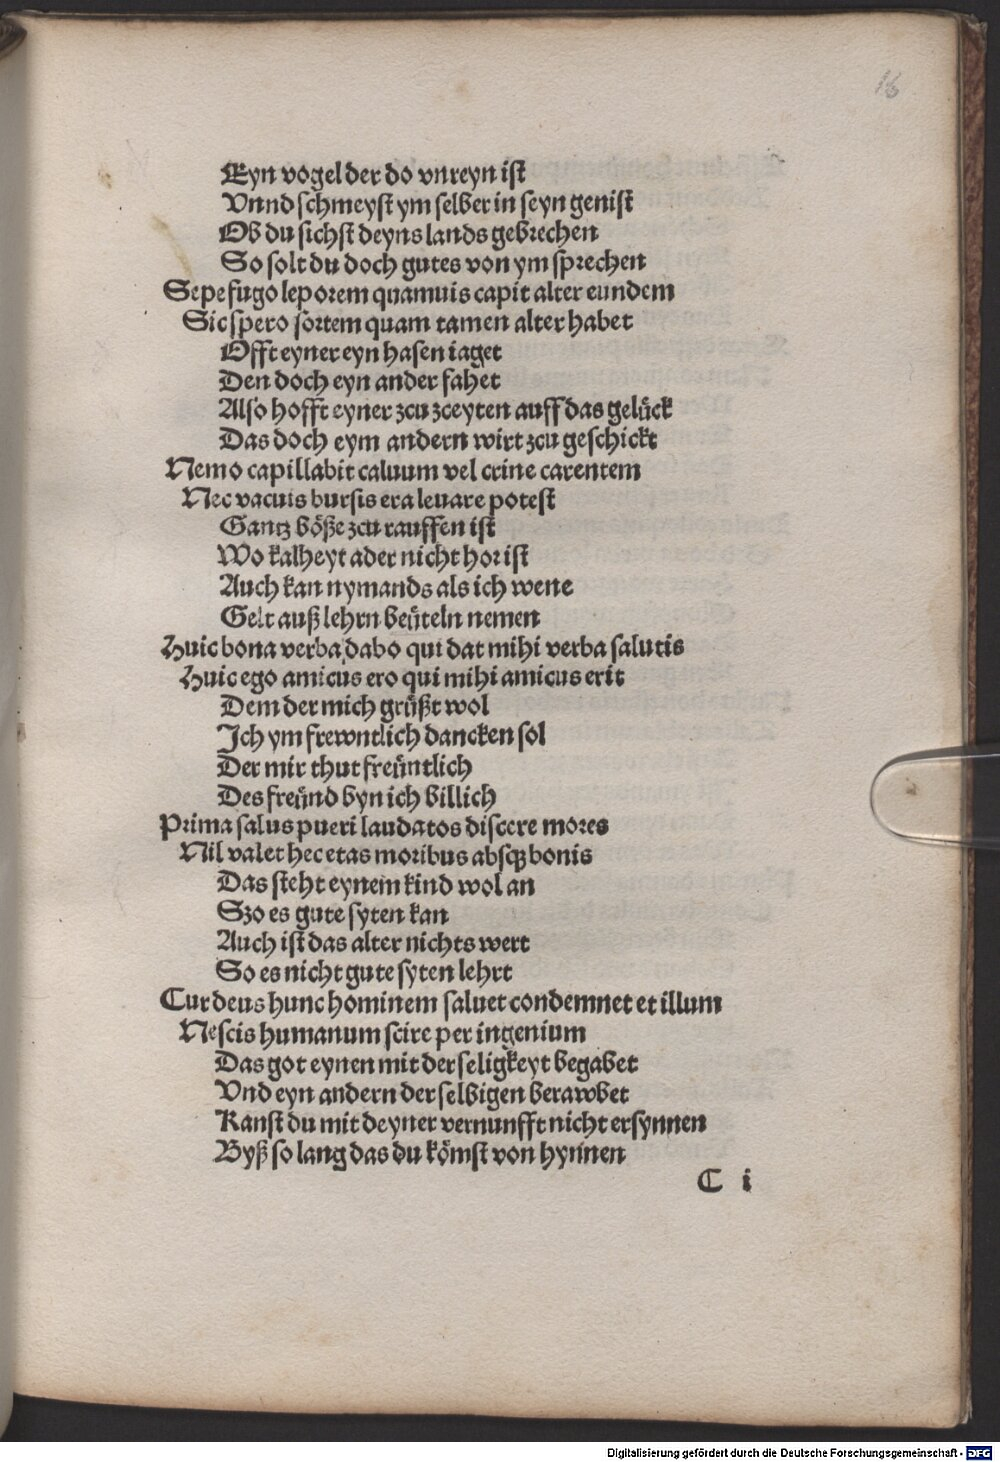 16
Eyn vogel der do vnreyn ist
Vnnd schmeyst ym selber in seyn genist
Ob du sichst deyns lands gebrechen
So solt du doch gutes von ym sprechen
Sepe fugo leporem quamuis capit alter eundem
Sic spero sortem quam tamen alter habet
Offt eyner eyn hasen iaget
Den doch eyn ander fahet
Also hofft eyner zcu zceyten auff das gelück
Das doch eym andern wirt zcu geschickt
Nemo capillabit caluum vel crine carentem
Nec vacuis bursis era leuare potest
Gantz böße zcu rauffen ist
Wo kalheyt ader nicht hor ist
Auch kan nymands als ich wene
Gelt auß lehrn beüteln nemen
Huic bona verba dabo qui dat mihi verba salutis
Huic ego amicus ero qui mihi amicus erit
Dem der mich grüßt wol
Ich ym frewntlich dancken sol
Der mir thut freüntlich
Des freünd byn ich billich
Prima salus pueri laudatos discere mores
Nil valet hec etas moribus absqꝫ bonis
Das steht eynem kind wol an
Szo es gute syten kan
Auch ist das alter nichts wert
So es nicht gute syten lehrt
Cur deus hunc hominem saluet condemnet et illum
Nescis humanum scire per ingenium
Das got eynen mit der seligkeyt begabet
Vnd eyn andern der selbigen berawbet
Kanst du mit deyner vernunfft nicht ersynnen
Byß so lang das du kömst von hynnen
C i
Digitalisierung gefördert durch die Deutsche Forschungsgemeinschaft - DFG